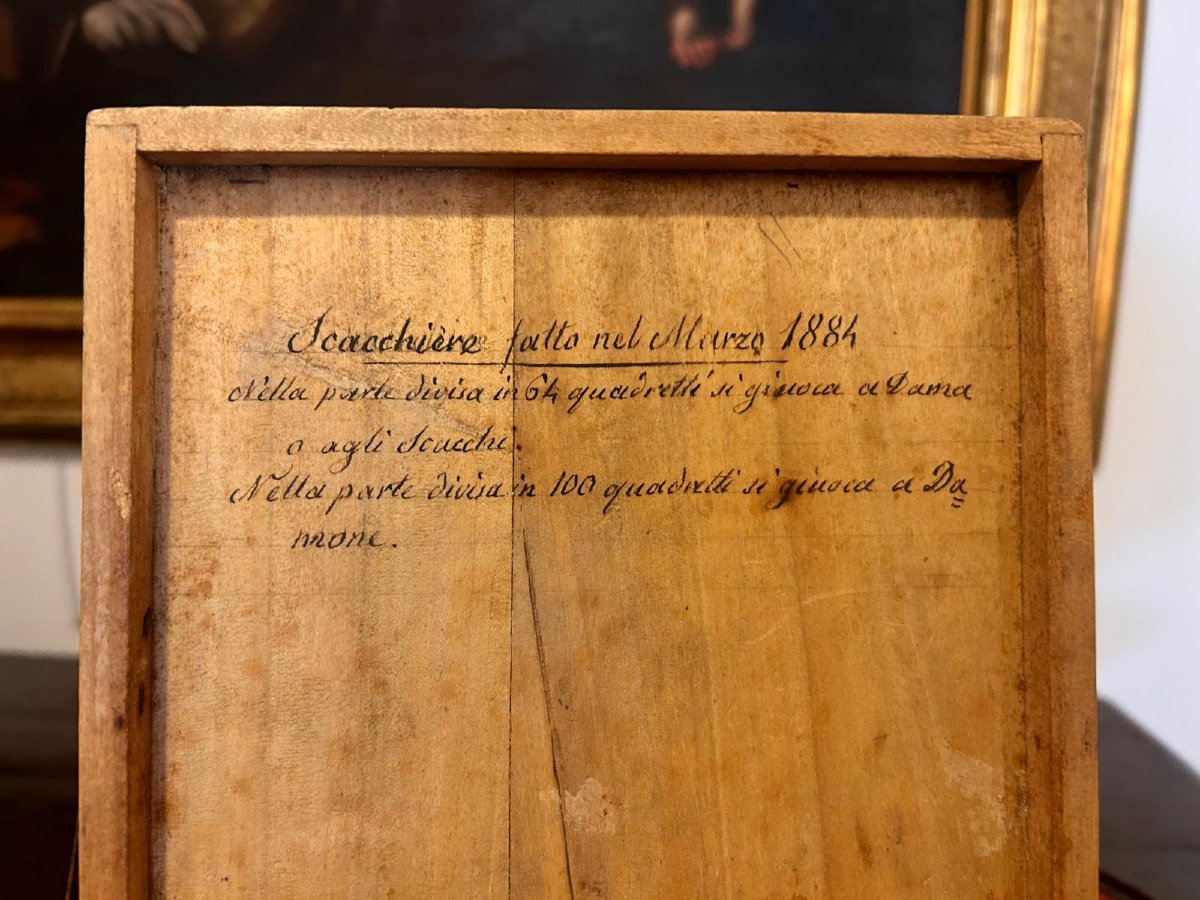 Scacchiere fatto nel Marzo 1884
Nella parte divisa in 64 quadretti si giuoca a Dama
o agli Scacchi.
Nella parte divisa in 100 quadretti si giuoca a Da=
mone.